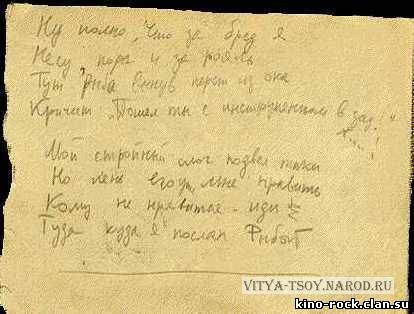 Ну полно, Что за бред я
Несу, пора и за рояль
Тут Рыба вынув перст из ока
Кричит „Пошел ты с инструментом в зад!"
Х...!
Мой стройный слог подвел таки
Но лень его мне править
Кому не нравится - иди
Туда куда я послан Рыбой
VITYA-TSOY.NAROD.RU
kino-rock.clan.su